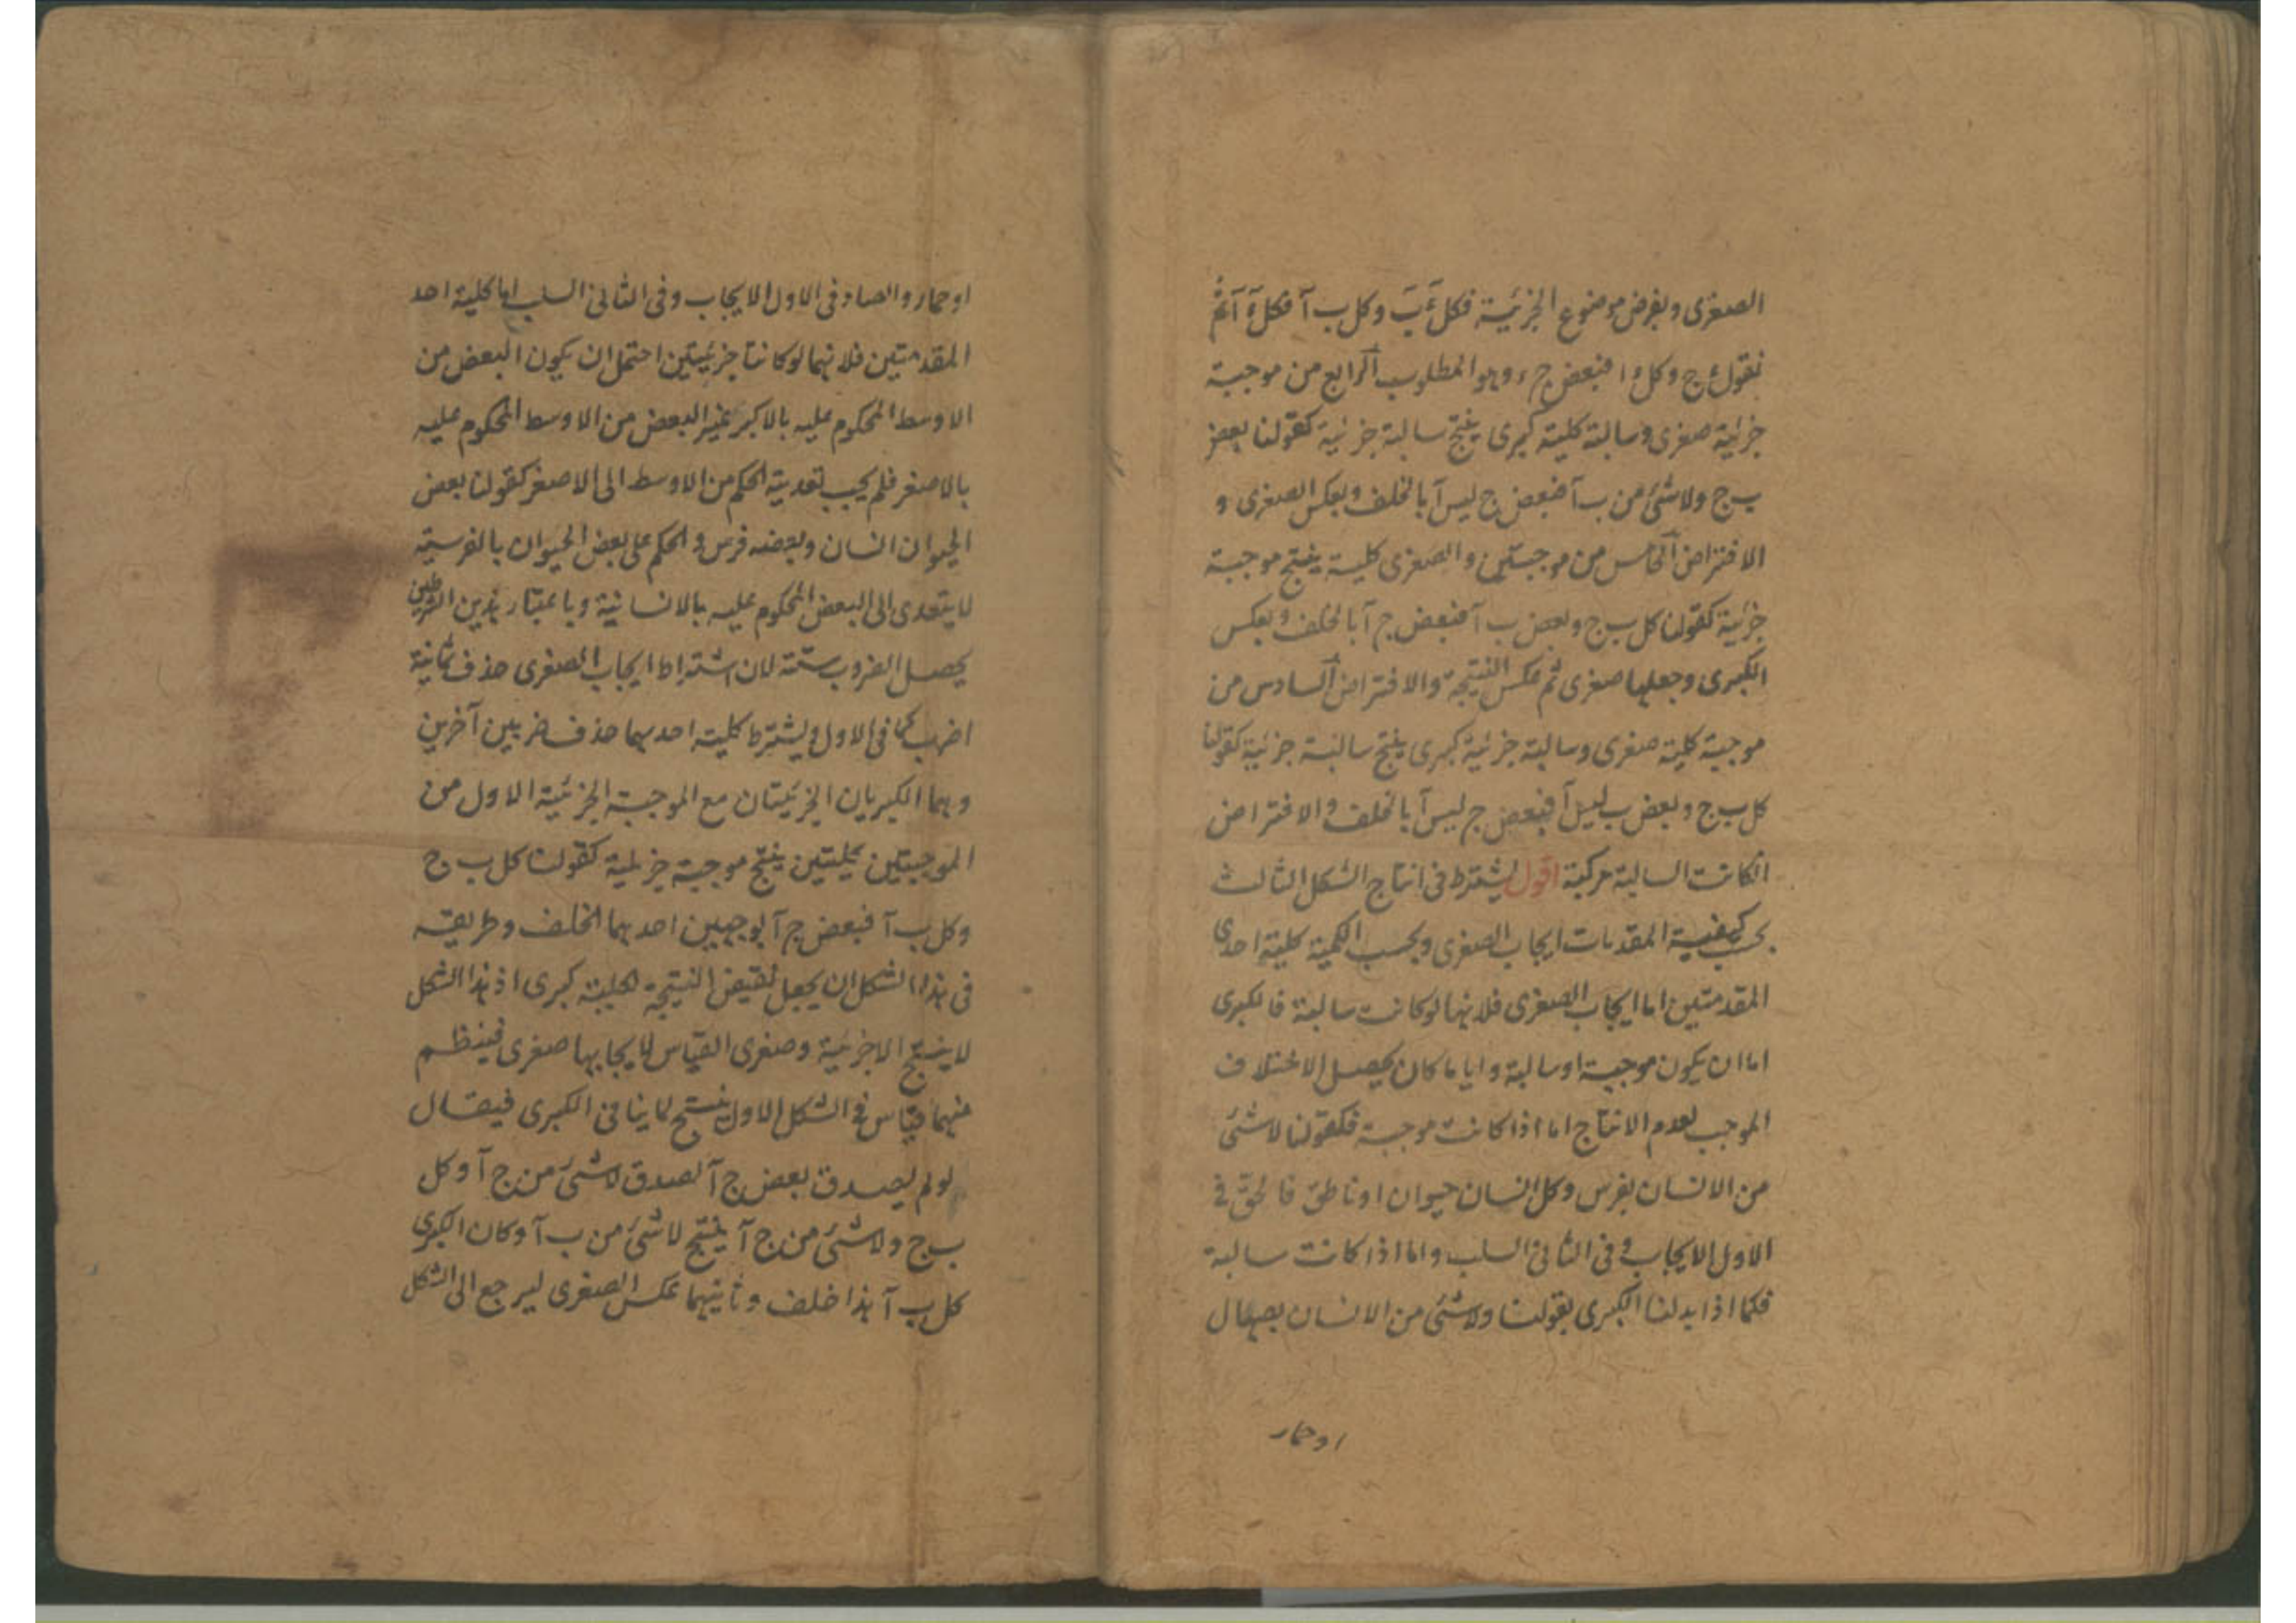 الصغرى ويفرض موضوع الجزئية فكل ءَ بَ وكل ب آ فكل ءَ آ ثم
نقول ءج وكل ء ا فبعض ج ء وهو المطلوب الرابع من موجبة
جزئية صغرى وسالبة كلية كبرى ينتج سالبة جزئية كقولنا بعض
ب ج ولا شئ من ب آ فبعض ج ليس آ بالخلف وبعكس الصغرى و
الافتراض الخامس من موجبتين والصغرى كلية ينتج موجبة
جزئية كقولنا كل ب ج وبعض ب آ فبعض ج آ بالخلف وبعكس
الكبرى وجعلها صغرى ثم عكس النتيجة والافتراض السادس من
موجبة كلية صغرى وسالبة جزئية كبرى ينتج سالبة جزئية كقولنا
كل ب ج وبعض ب ليس آ فبعض ج ليس آ بالخلف والافتراض
انكانت السالبة مركبة اقول يشترط فى انتاج الشكل الثالث
بحسب كيفية المقدمات ايجاب الصغرى وبحسب الكمية كلية احدى
المقدمتين اما ايجاب الصغرى فلانها لو كانت سالبة فالكبرى
اما ان يكون موجبة او سالبة وايا ما كان يحصل الاختلاف
الموجب لعدم الانتاج اما اذا كانت موجبة فكقولنا لا شئ
من الانسان بفرس وكل انسان حيوان او ناطق فالحق فى
الاول الايجاب وفى الثانى السلب واما اذا كانت سالبة
فكما اذا بدلنا الكبرى بقولنا ولا شئ من الانسان بصهال
او حمار
او حمار والصادق فى الاول الايجاب وفى الثانى السلب اما كلية احد
المقدمتين فلانهما لو كانتا جزئيتين احتمل ان يكون البعض من
الاوسط المحكوم عليه بالاكبر غير البعض من الاوسط المحكوم عليه
بالاصغر فلم يجب تعدية الحكم من الاوسط الى الاصغر كقولنا بعض
الحيوان انسان وبعضه فرس والحكم على بعض الحيوان بالفرسية
لا يتعدى الى البعض المحكوم عليه بالانسانية وباعتبار هذين الشرطين
يحصل الضروب ستة لان اشتراط ايجاب الصغرى حذف ثمانية
اضرب كما فى الاول ويشترط كلية احديهما حذف ضربين آخرين
وهما الكبريان الجزئيتان مع الموجبة الجزئية الاول من
الموجبتين كليتين ينتج موجبة جزئية كقولنا كل ب ج
وكل ب آ فبعض ج آ بوجهين احدهما الخلف وطريقه
فى هذا الشكل ان يجعل نقيض النتيجة لكليته كبرى اذ هذا الشكل
لا ينتج الا جزئية وصغرى القياس لايجابها صغرى فينتظم
منهما قياس فى الشكل الاول ينتج لما ينافى الكبرى فيقال
لو لم يصدق بعض ج آ لصدق لا شئ من ج آ وكل
ب ج ولا شئ من ج آ ينتج لا شئ من ب آ وكان الكبرى
كل ب آ هذا خلف وثانيهما عكس الصغرى ليرجع الى الشكل